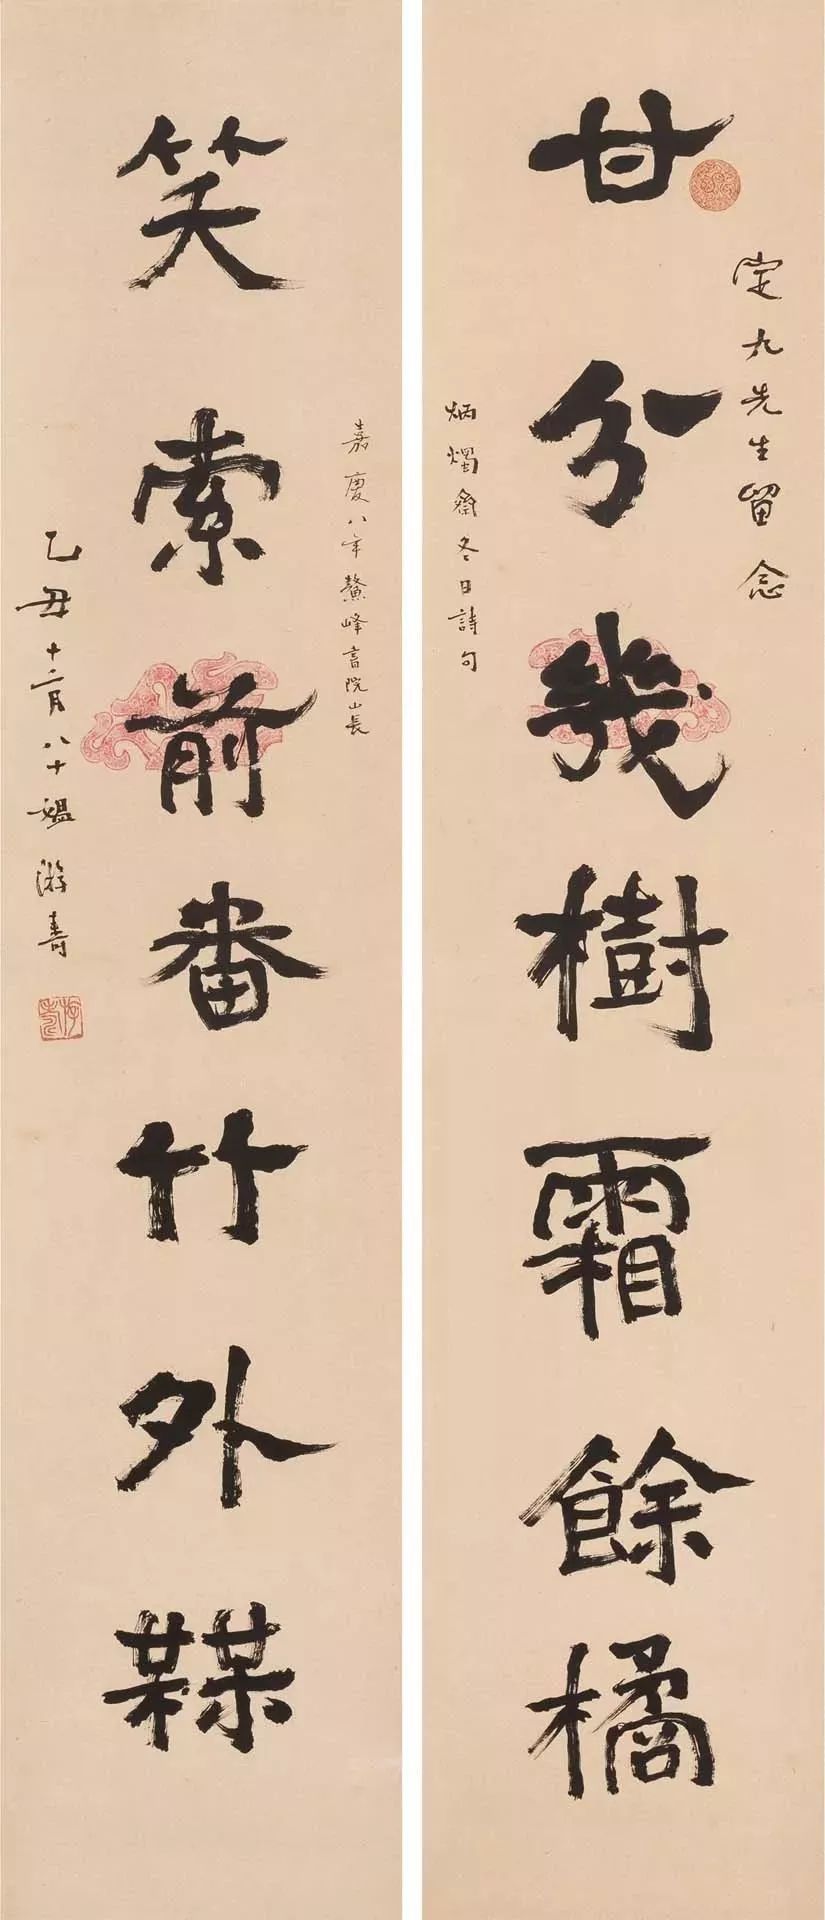 定九先生留念
甘分幾樹霜餘橘
炳燭齋冬日詩句
嘉慶八年鰲峰書院山長
笑索前番竹外
乙丑十二月八十媼游壽
游壽